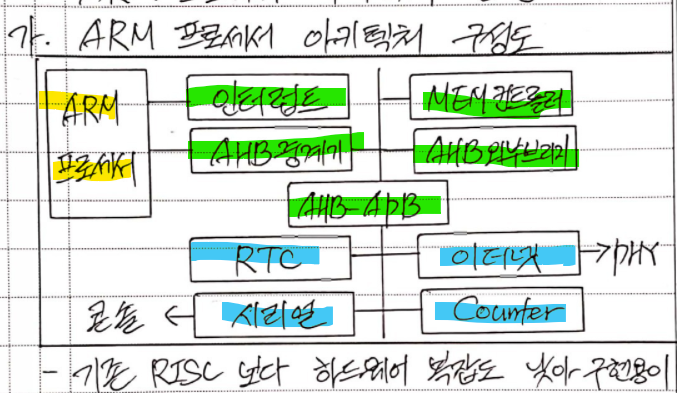 가. ARM 프로세서 아키텍처 구성도
ARM 프로세서
인터럽트
MEM 컨트롤러
AHB 중계기
AHB 외부브리지
AHB-APB
RTC
이더넷
→PHY
콘솔 ←
시리얼
Counter
- 기존 RISC 보다 하드웨어 복잡도 낮아 구현용이